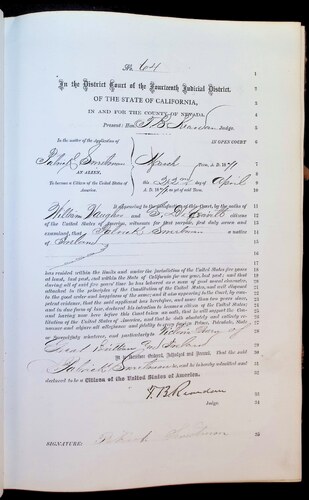 No. 64 1
In the District Court of the Fourteenth Judicial District, 2
OF THE STATE OF CALIFORNIA, 3
IN AND FOR THE COUNTY OF NEVADA. 4
Present: Hon. T. B. Judge. 5
In the matter of the Application of IN OPEN COURT 6
Patrick March Term, A. D. 1874 7
AN ALIEN, this 22nd day of April 8
To become a Citizen of the United States of America. A. D. 1874 9
It appearing to the satisfaction of this Court, by the oaths of
William Vaughn and citizens
of the United States of America, witnesses for that purpose, first duly sworn and
examined, that Patrick a native
of Ireland
has resided within the limits and under the jurisdiction of the United States five years
at least, last past, and within the State of California for one year, last past; and that
during all of said five years' time he has behaved as a man of good moral character,
attached to the principles of the Constitution of the United States, and well disposed
to the good order and happiness of the same; and it also appearing to the Court, by competent
evidence, that the said applicant has heretofore, and more than two years since,
and in due form of law, declared his intention to become a citizen of the United States;
and having now here before this Court taken an oath, that he will support the Constitution
of the United States of America, and that he doth absolutely and entirely renounce
and abjure all allegiance and fidelity to every foreign Prince, Potentate, State
or Sovereignty whatever, and particularly to Victoria Queen of
Great Brittan and Ireland
It is therefore Ordered, Adjudged and Decreed, That the said
Patrick be, and he hereby is admitted and
declared to be a Citizen of the United States of America.
T. B.
Judge. 34
SIGNATURE: Patrick 35